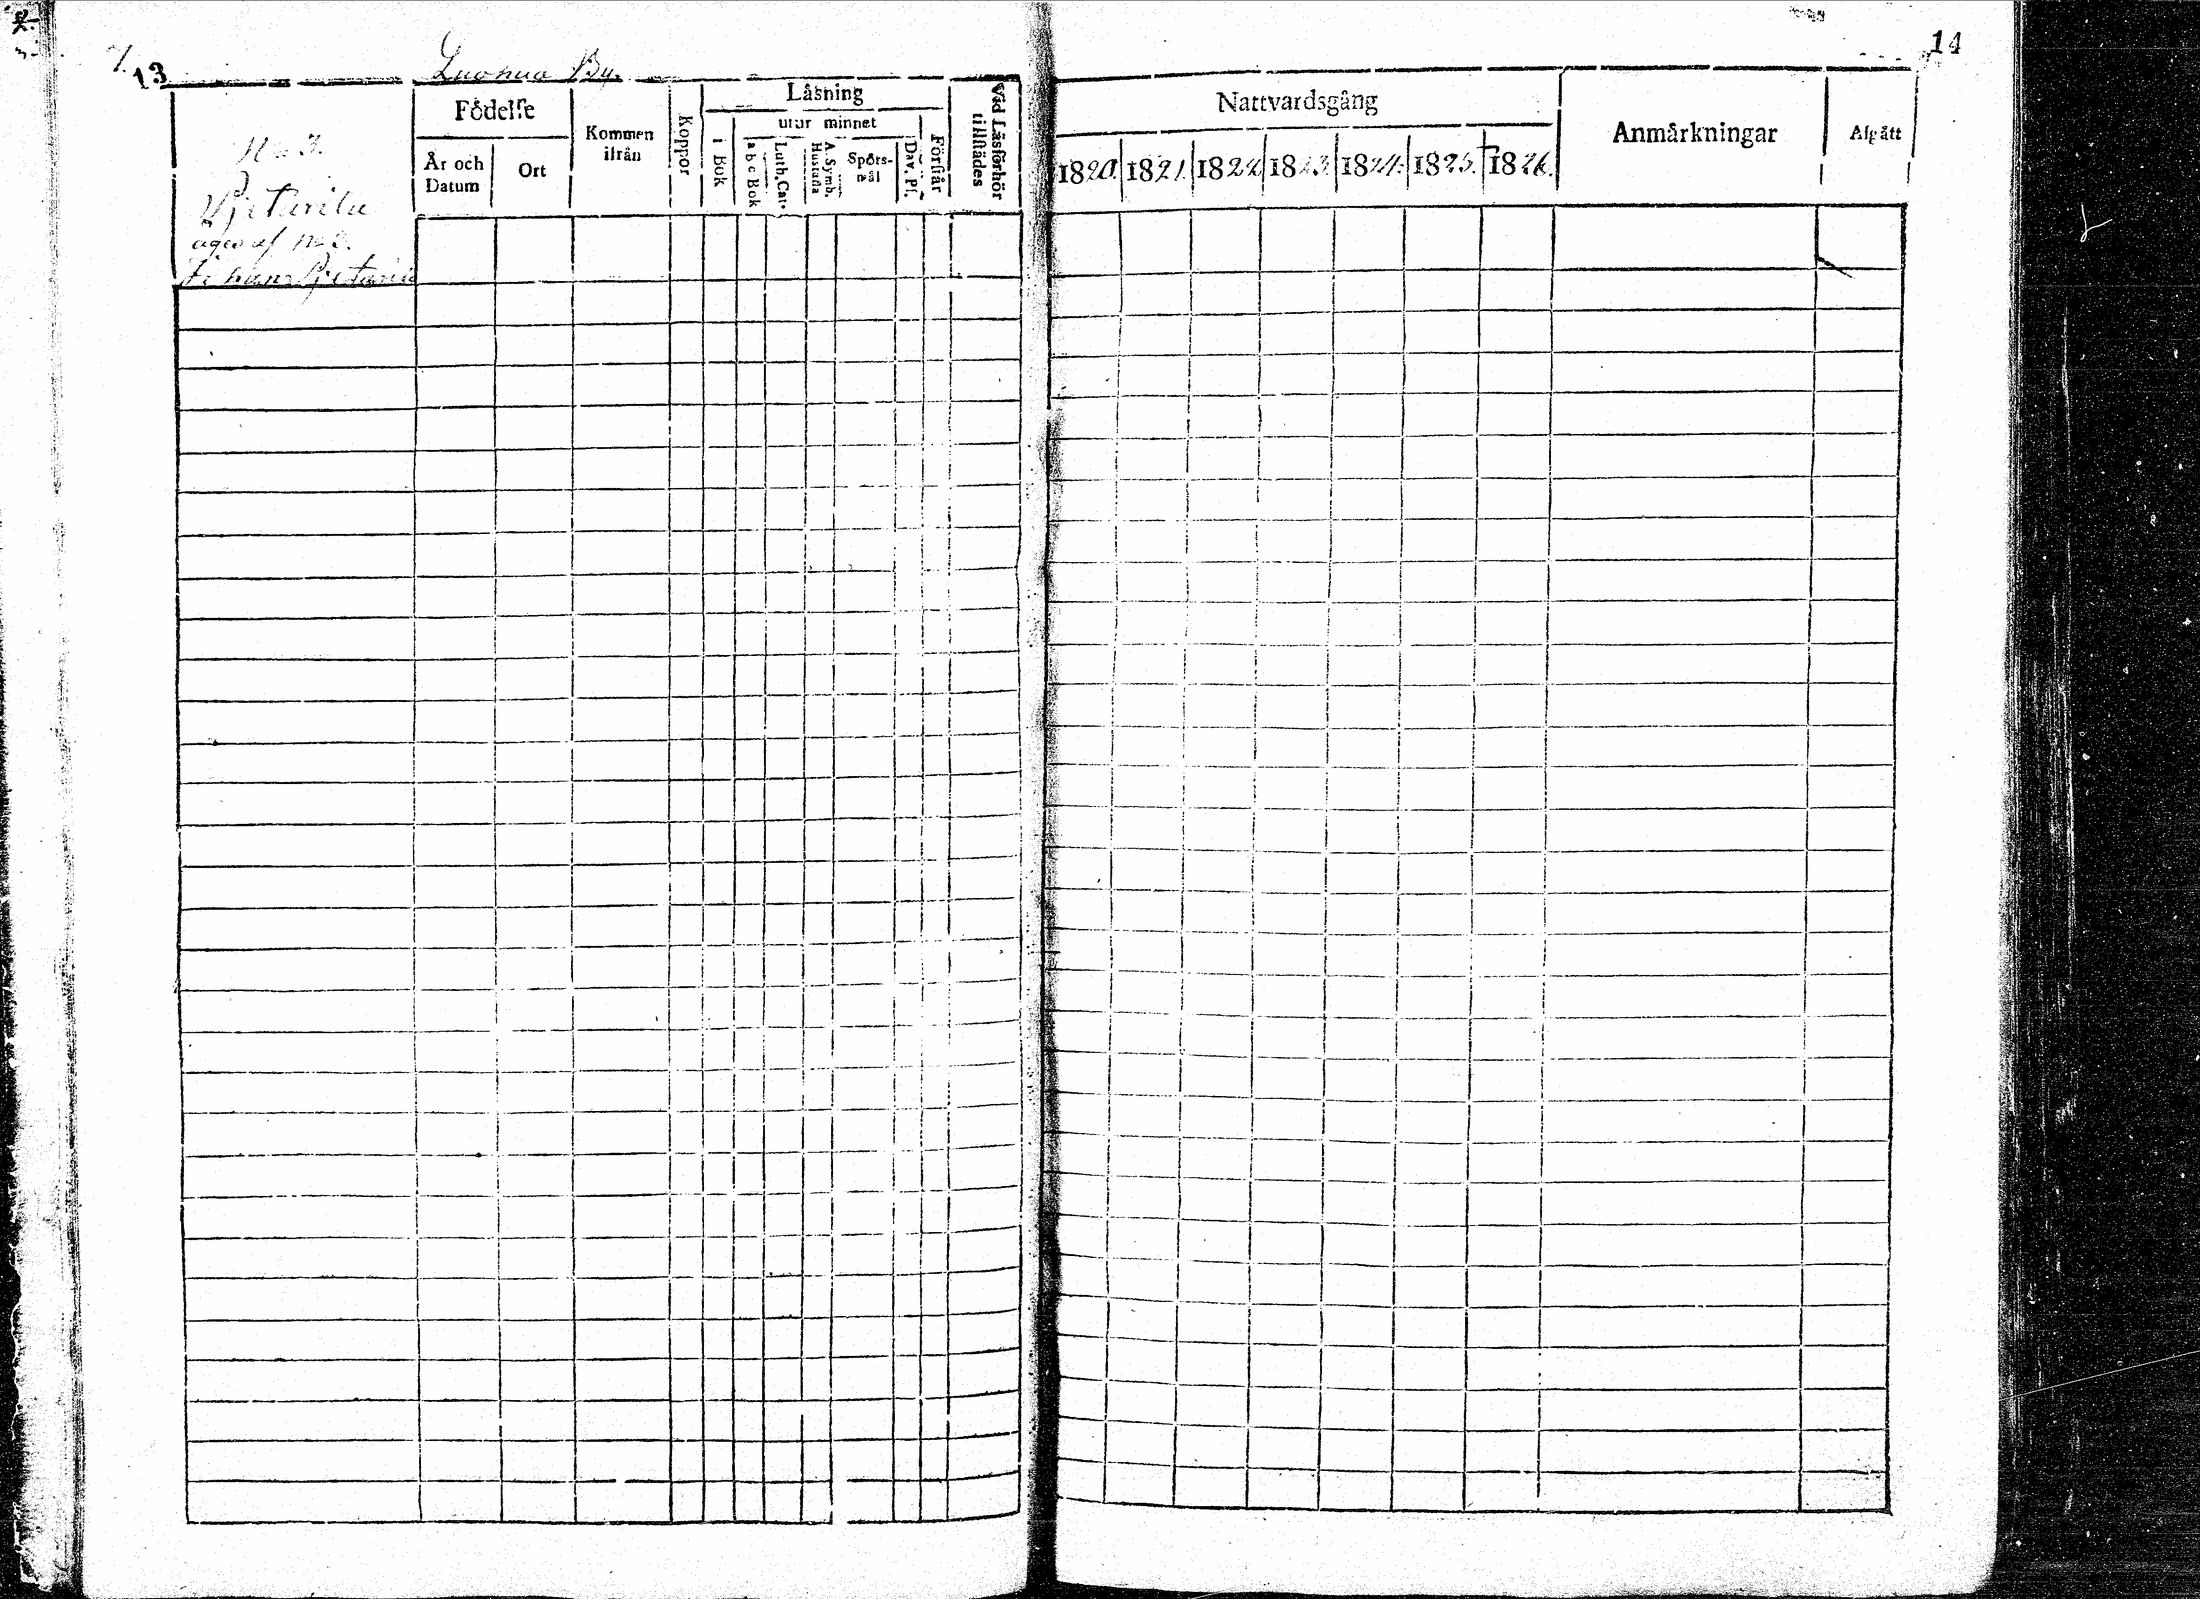 7.
13
Luohua By.
No 3.
Pjetarila
äges af No 2.
Johan Pjetarila
Födelse
År och Datum
Ort
Kommen ifrån
Koppor
Läsning
i Bok
utur minnet
a b c Bok
Luth. Cat.
A. Symb. Hustafla
Spörsmål
Dav. Ps.
Förstår
Vid Läsförhör tillstädes
14
Nattvardsgång
1820. 1821. 1822. 1823. 1824. 1825. 1826.
Anmärkningar
Afgått